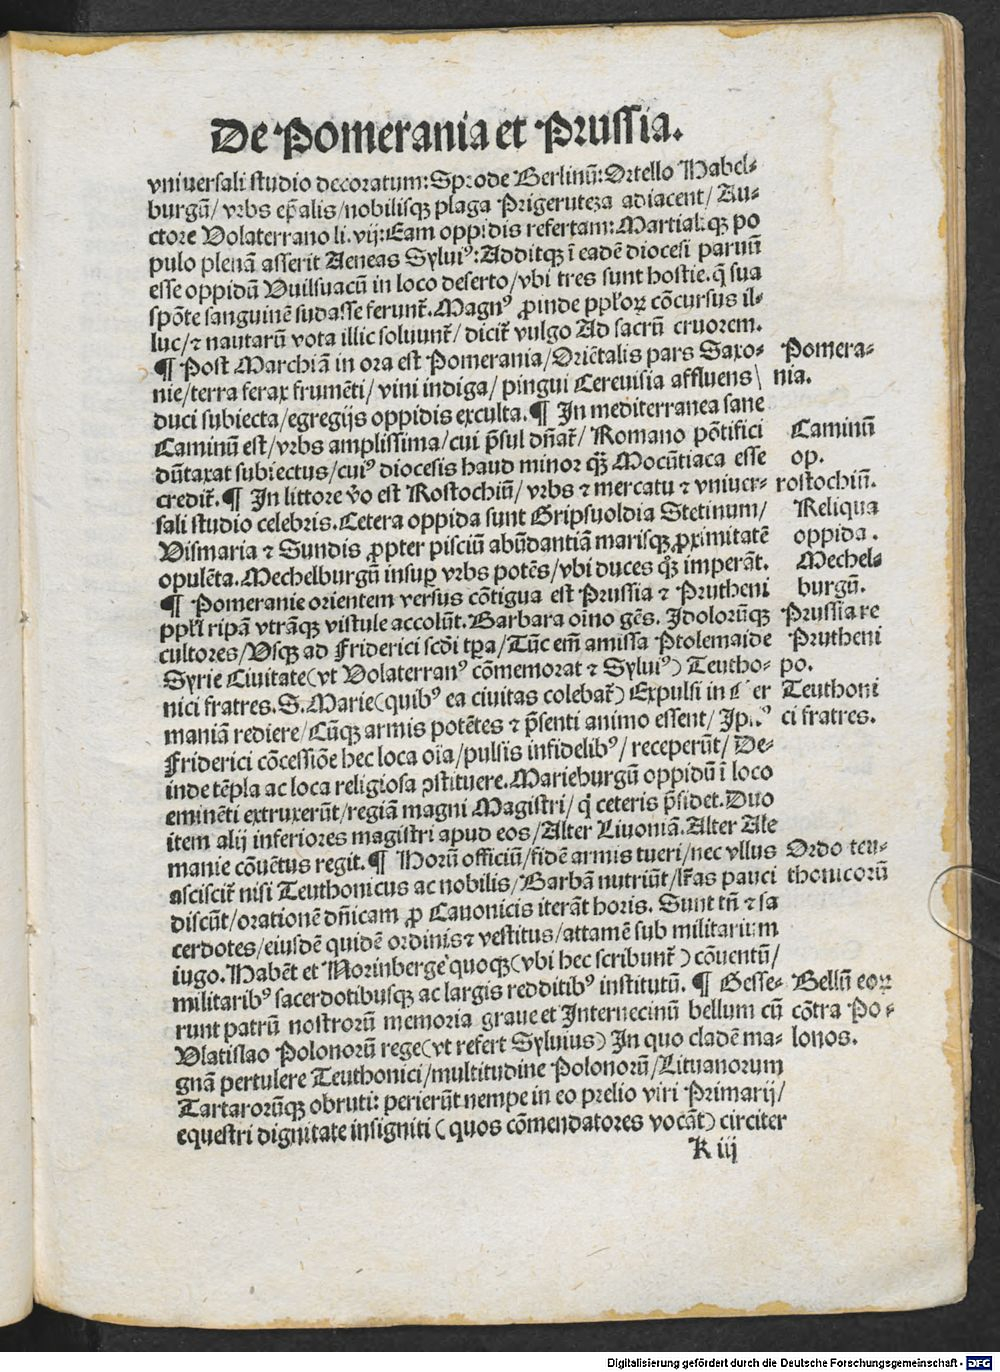 De Pomerania et Prussia.
vniuersali studio decoratum: Sprode Berlinū: Ortello Habel⸗
burgū/ vrbs ep̄alis/ nobilisqꝫ plaga Prigeruteza adiacent/ Au⸗
ctore Volaterrano li. vij: Eam oppidis refertam: Martialiqꝫ po
pulo plenā asserit Aeneas Syluiꝰ: Additqꝫ ī eadē diocesi paruū
esse oppidū Vuilsuacū in loco deserto/ vbi tres sunt hostie. q̄ sua
spōte sanguinē sudasse ferunt̄. Magnꝰ ꝓinde pp̄loꝝ cōcursus il⸗
luc/ ⁊ nautarū vota illic soluunt̄/ dicit̄ vulgo Ad sacrū cruorem.
¶ Post Marchiā in ora est Pomerania/ Oriētalis pars Saxo⸗
nie/ terra ferax frumēti/ vini indiga/ pingui Cereuisia affluens\
duci subiecta/ egregijs oppidis exculta. ¶ In mediterranea sane
Caminū est/ vrbs amplissima/ cui p̄sul dn̄at̄/ Romano pōtifici
dūtaxat subiectus/ cuiꝰ diocesis haud minor qꝫ̄ Mocūtiaca esse
credit̄. ¶ In littore v̄o est Rostochiū/ vrbs ⁊ mercatu ⁊ vniuer⸗
sali studio celebris. Cetera oppida sunt Gripsuoldia Stetinum/
Vismaria ⁊ Sundis ꝓpter pisciū abūdantiā marisqꝫ ꝓximitatē
opulēta. Mechelburgū insuꝑ vrbs potēs/ vbi duces qͦꝫ imperāt.
¶ Pomeranie orientem versus cōtigua est Prussia ⁊ Prutheni
pp̄li ripā vtrāqꝫ vistule accolūt. Barbara oīno gēs. Idolorūqꝫ
cultores/ Vsqꝫ ad Friderici scd̄i tꝑa/ Tūc em̄ amissa Ptolemaide
Syrie Ciuitate (vt Volaterranꝰ cōmemorat ⁊ Syluiꝰ) Teutho⸗
nici fratres. S. Marie (quibꝰ ea ciuitas colebat̄) Expulsi in Ger
maniā rediere/ Cūqꝫ armis potētes ⁊ p̄senti animo essent/
Friderici cōcessiōe hec loca oīa/ pulsis infidelibꝰ/ receperūt/ De⸗
inde tēpla ac loca religiosa ꝯstituere. Marieburgū oppidū ī loco
eminēti extruxerūt/ regiā magni Magistri/ q̄ ceteris p̄sidet. Duo
item alij inferiores magistri apud eos/ Alter Liuoniā. Alter Ale
manie cōuētus regit. ¶ Horū officiū/ fidē armis tueri/ nec vllus
asciscit̄ nisi Teuthonicus ac nobilis/ Barbā nutriūt/ lr̄as pauci
discūt/ orationē dn̄icam ꝓ Canonicis iterāt horis. Sunt tn̄ ⁊ sa
cerdotes/ eiusdē quidē ordinis ⁊ vestitus/ attamē sub militarium
iugo. Habēt et Norinberge quoqꝫ (vbi hec scribunt̄) cōuentū/
militaribꝰ sacerdotibusqꝫ ac largis redditibꝰ institutū. ¶ Gesse⸗
runt patrū nostrorū memoria graue et Internecinū bellum cū
Vlatislao Polonorū rege (vt refert Syluius) In quo cladē ma⸗
gnā pertulere Teuthonici/ multitudine Polonorū/ Lituanorum
Tartarorūqꝫ obruti: perierūt nempe in eo prelio viri Primarij/
equestri dignitate insigniti (quos cōmendatores vocāt) circiter
K iij
Pomera⸗
nia.
Caminū
op.
rostochiū.
Reliqua
oppida.
Mechel⸗
burgū.
Prussia re
Prutheni
po.
Teuthoni
ci fratres.
Ordo teu⸗
thonicorū
Bellū eoꝝ
cōtra Po⸗
lonos.
Digitalisierung gefördert durch die Deutsche Forschungsgemeinschaft - DFG